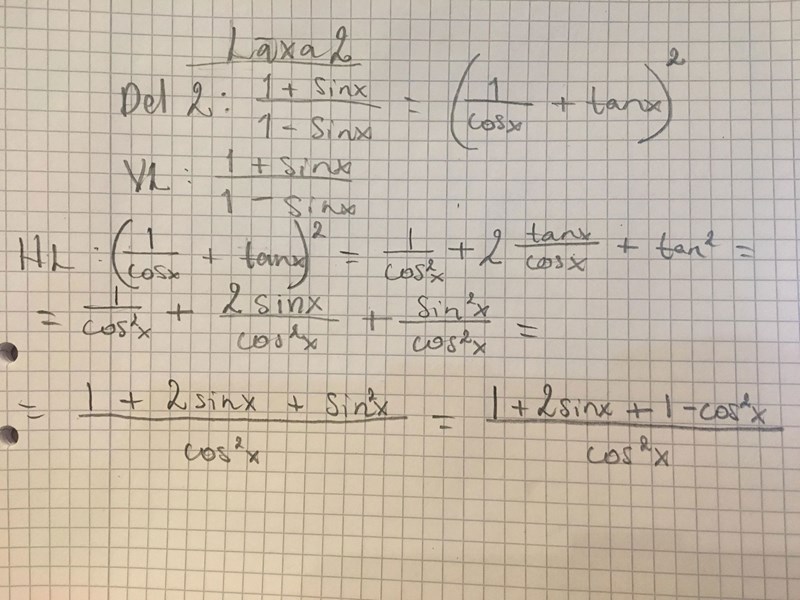 Läxa 2
Del 2: \frac{1 + sinx}{1 - sinx} = (\frac{1}{cosx} + tanx)^2
VL: \frac{1 + sinx}{1 - sinx}
HL: (\frac{1}{cosx} + tanx)^2 = \frac{1}{cos^2x} + 2 \frac{tanx}{cosx} + tan^2 =
= \frac{1}{cos^2x} + \frac{2 sinx}{cos^2x} + \frac{sin^2x}{cos^2x} =
= \frac{1 + 2 sinx + sin^2x}{cos^2x} = \frac{1 + 2 sinx + 1 - cos^2x}{cos^2x}